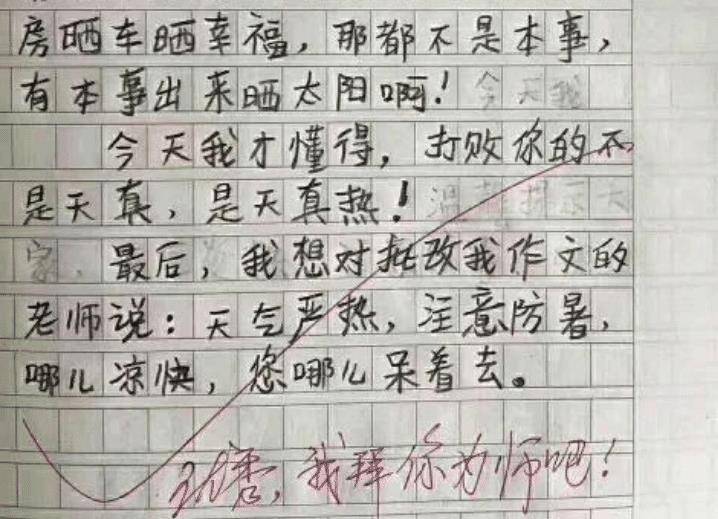 房晒车晒幸福，那都不是本事，
有本事出来晒太阳啊！今天我
今天我才懂得，打败你的不
是天真，是天真热！温馨提示大
家，最后，我想对批改我作文的
老师说：天气严热，注意防暑，
哪儿凉快，您哪儿呆着去。
优秀，我拜你为师吧！